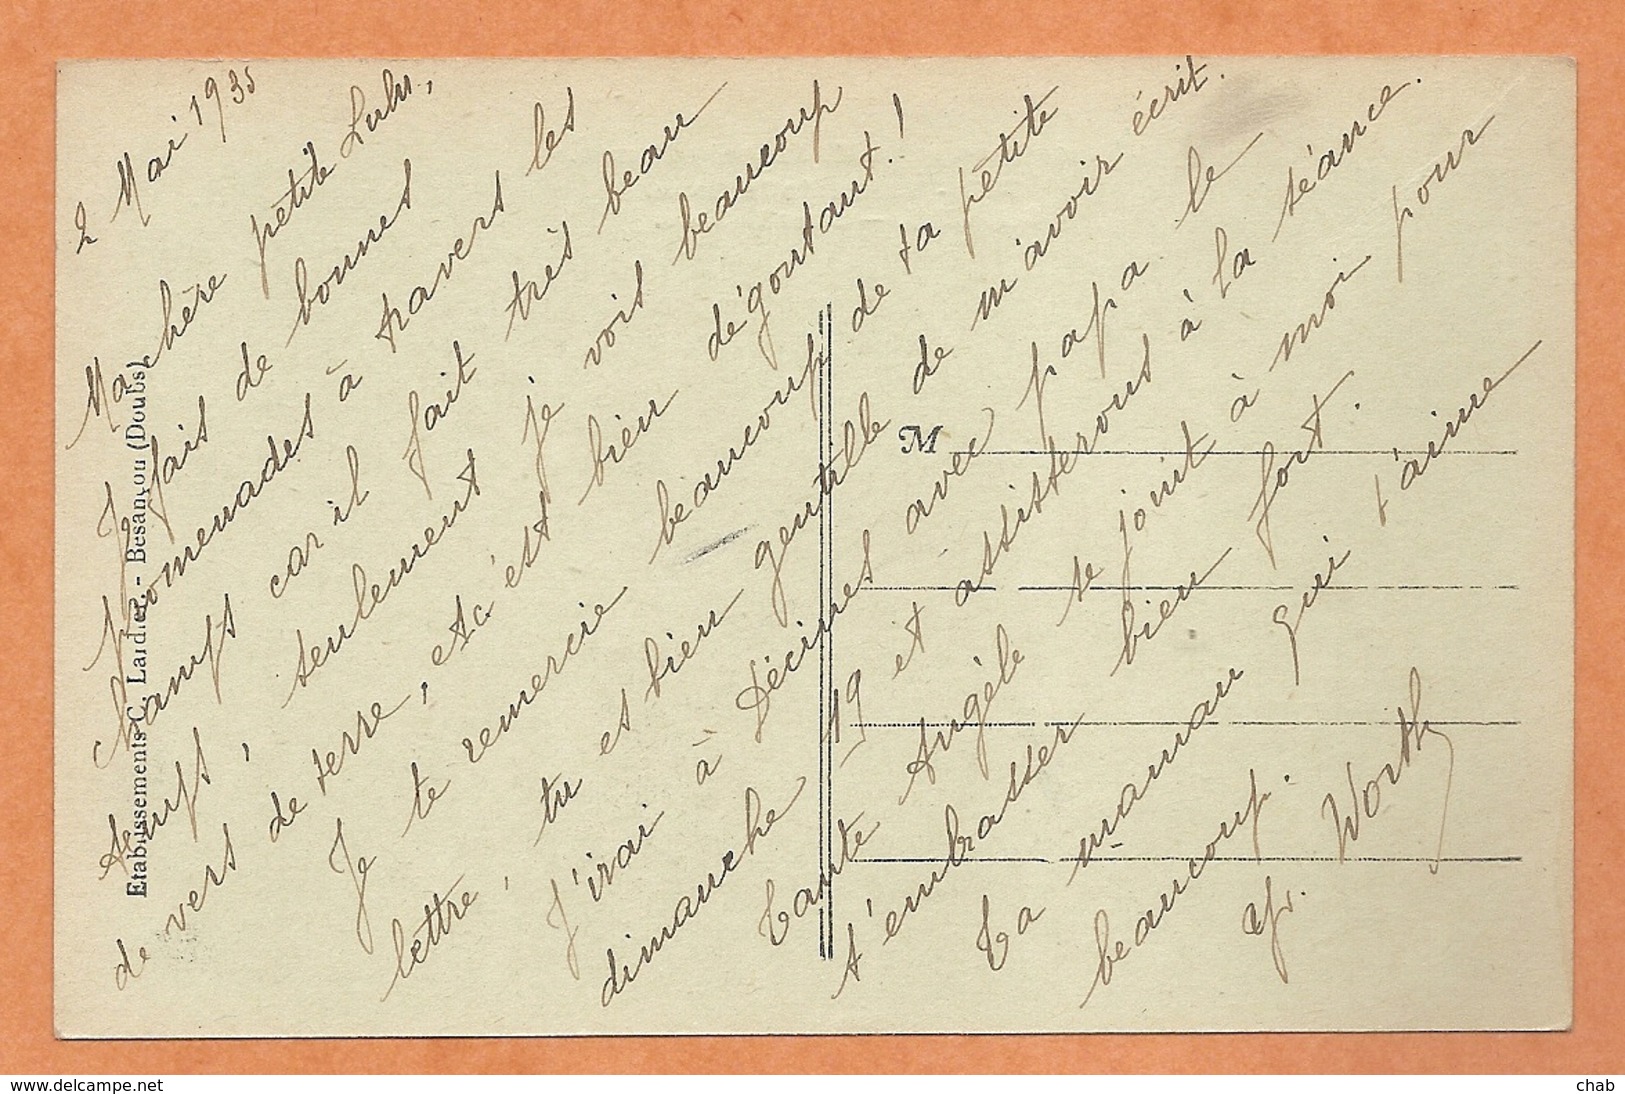 2 Mai 1935
Ma chère petite Lulu,
Je fais de bonnes
promenades à travers les
champs car il fait très beau
temps, seulement je vois beaucoup
de vers de terre, et c'est bien dégoutant!
Je te remercie beaucoup de ta petite
lettre, tu es bien gentille de m'avoir écrit.
J'irai à Décines avec papa le
dimanche 19 et assisterons à la séance.
Tante Angèle se joint à moi pour
t'embrasser bien fort.
Ta maman qui t'aime
beaucoup.
Worth
M
Etablissements C. Lardier - Besançon (Doubs)
www.delcampe.net
chab